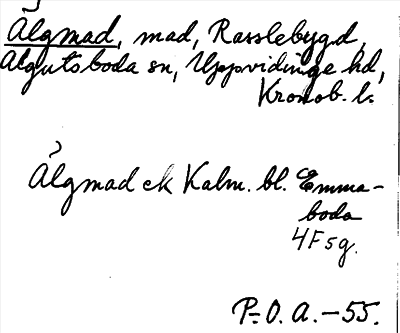 Älgmad, mad, Rasslebygd,
Algutsboda sn, Uppvidinge hd,
Kronob. l.
Älgmad ek Kalm. bl. Emma-
boda
4F5g.
P:O.A.-55.